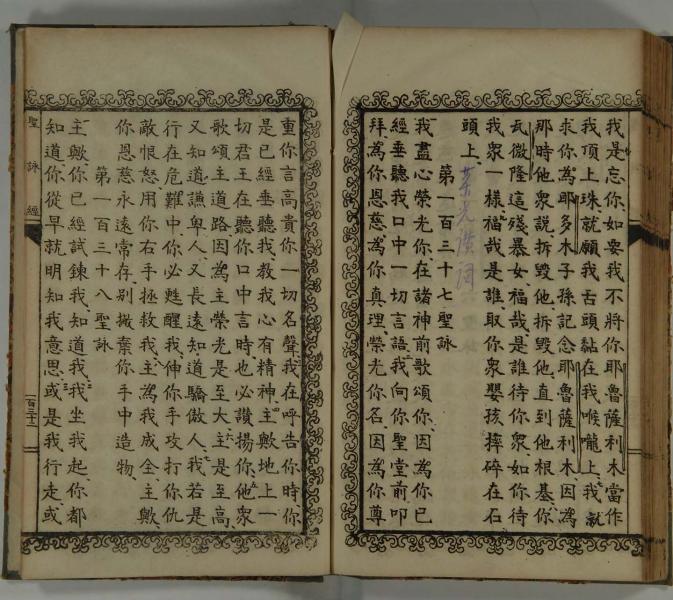 我是忘你、如要我不將你耶魯薩利木當作
我頂上珠、就願我舌頭黏在我喉嚨上、我就
求你為耶多木子孫記念耶魯薩利木、因為
那時他衆說、拆毀他、拆毀他、直到他根基、你
瓦微隆這殘暴女、福哉是誰待你衆、如你待
我衆一樣、福哉是誰取你衆嬰孩摔碎在石
頭上、
第一百三十七聖詠
我盡心榮光你、在諸神前歌頌你、因為你已
經垂聽我口中一切言語、我向你聖堂前叩
拜、為你恩慈、為你真理、榮光你名、因為你尊
重你言、高貴你一切名聲、我在呼告你時、你
是已經垂聽我、教我心有精神、主歟、地上一
切君王在聽你口中言時、也必讚揚你、他衆
歌頌主道路、因為主榮光是至大、主是至高、
又知道謙卑人、又長遠知道驕傲人、我若是
行在危難中、你必甦醒我、伸你手攻打我仇
敵恨怒、用你右手拯救我、主為我成全、主歟、
你恩慈永遠常存、別撇棄你手中造物、
第一百三十八聖詠
主歟、你已經試鍊我、知道我、我坐我起、你都
知道、你從早就明知我意思、或是我行走、或
聖詠經